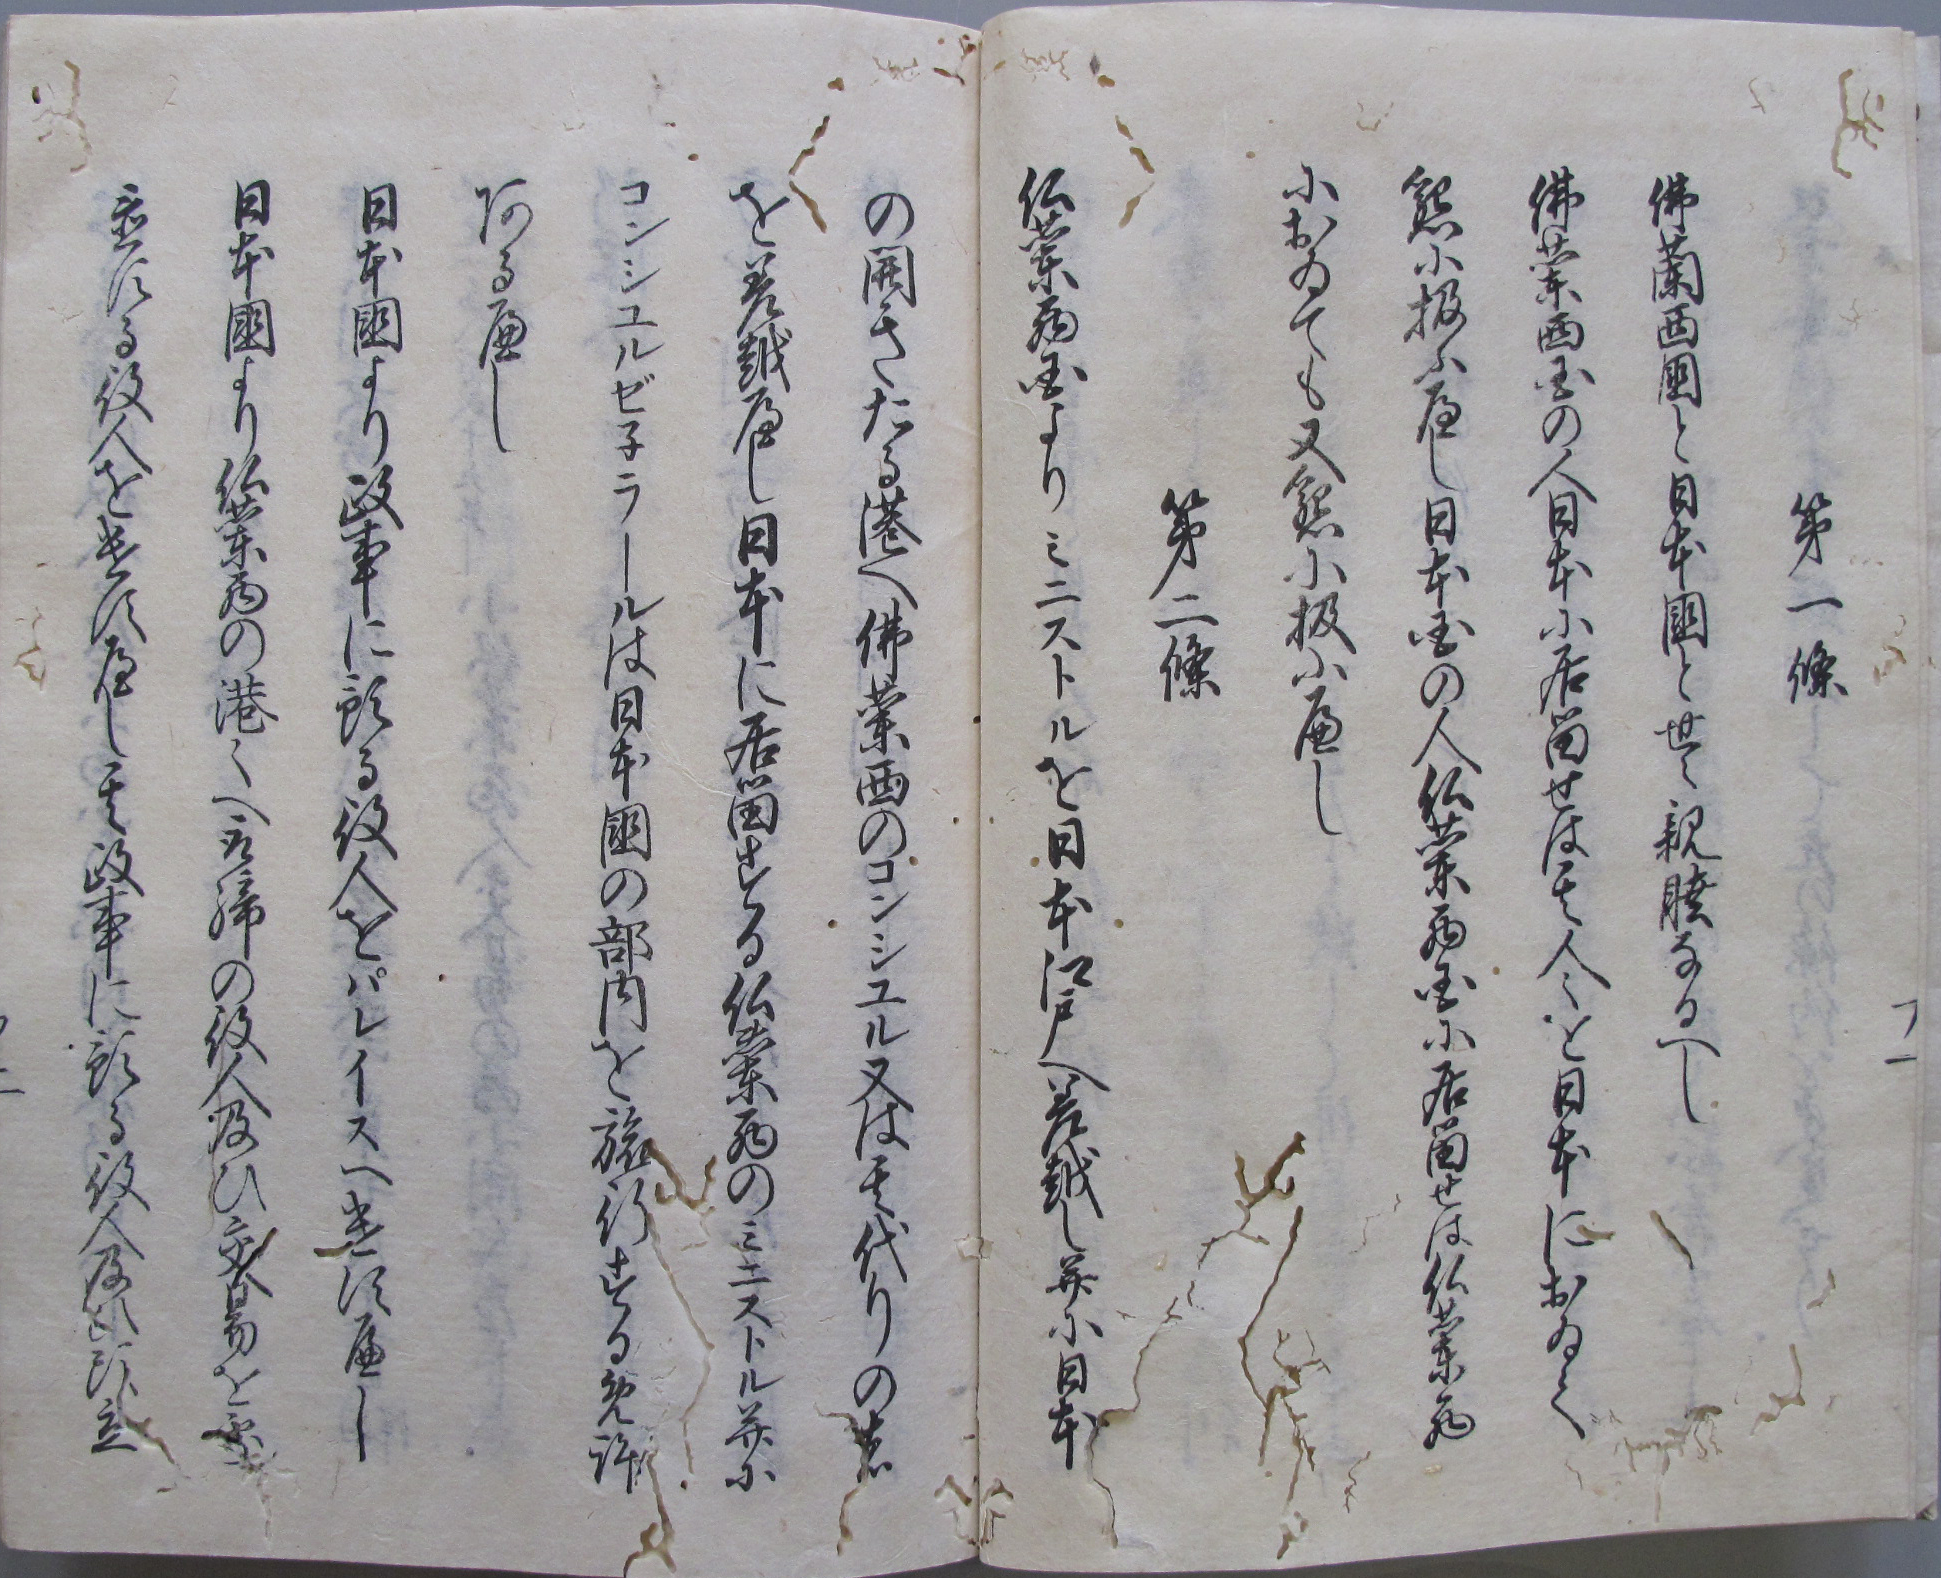 第一條
佛蘭西國と日本國と世々親睦なるへし
佛蘭西国の人日本に居留せは其人々を日本におゐて
懇に扱ふへし日本国の人仏蘭西国に居留せは仏蘭西
におゐても又懇に扱ふ屬し
第二條
仏蘭西国よりミニストルを日本江戸へ差越し并に日本
の開きたる港へ佛蘭西のコンシユル又は其代りの者
を差越へし日本に居留する仏蘭西のミニストル并に
コンシユルゼ子ラールは日本國の部内を旅行する免許
ある屬し
日本國より政事に預る役人をパレイスへ遣す屬し
日本國より仏蘭西の港々へ取締の役人及ひ交易を
する役人を遣すへし其政事に預る役人及ひ頭立
フ一